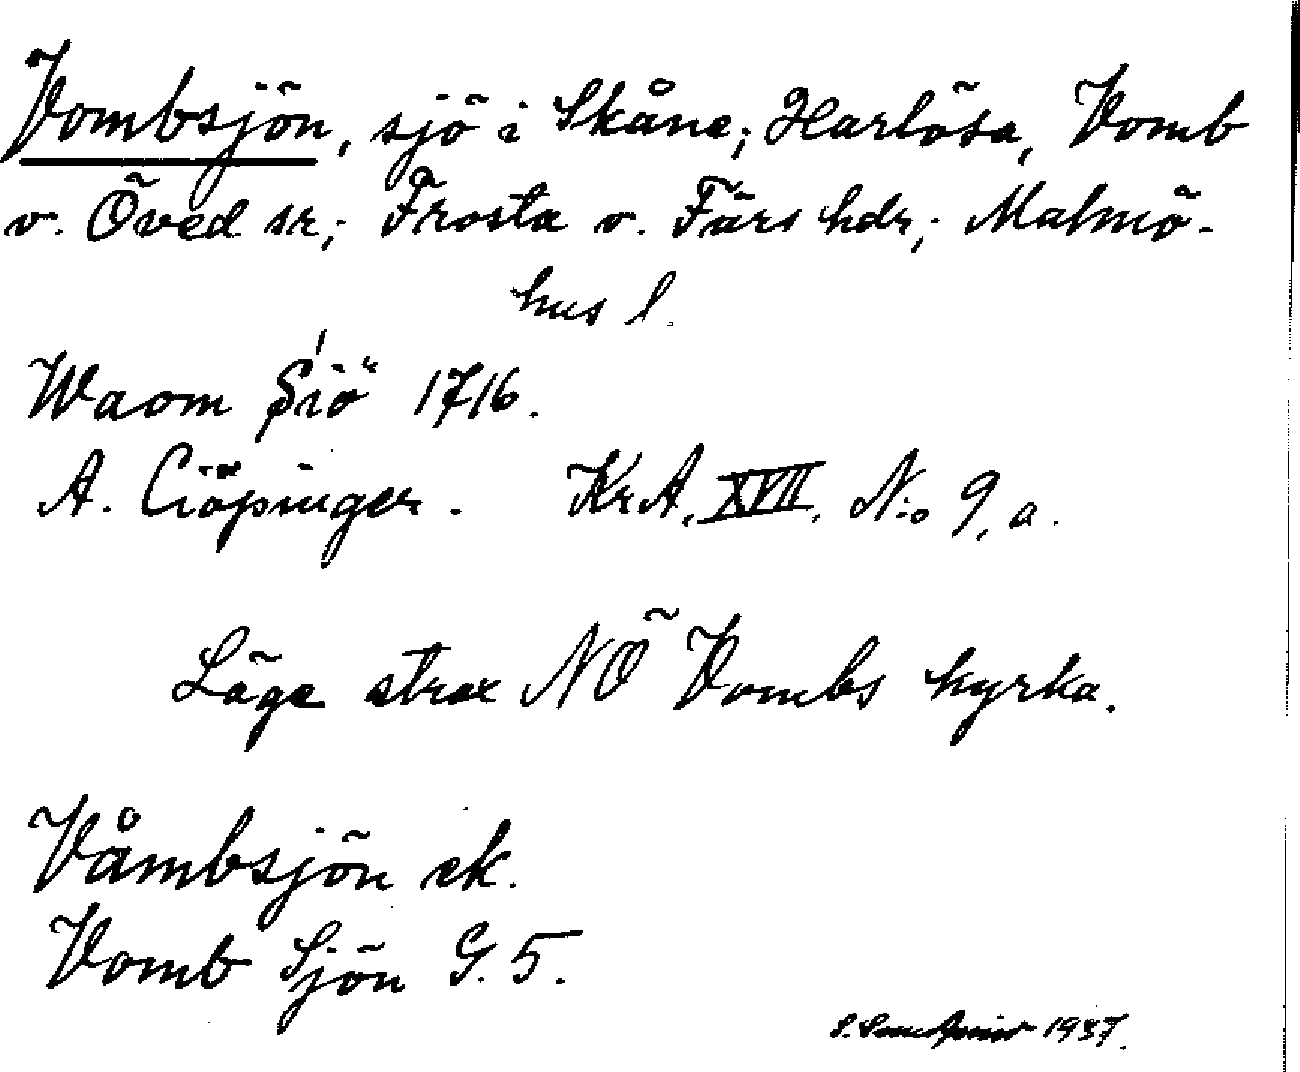 Vombsjön, sjö i Skåne; Harlösa, Vomb
o. Öved sr; Frosta o. Färs hdr; Malmö-
hus l.
Waom Siö 1716.
A. Ciöpinger. KrA, XVII, N:o 9, a.
Läge strax NÖ Vombs kyrka.
Våmbsjön ek.
Vomb Sjön G. 5.
1937.